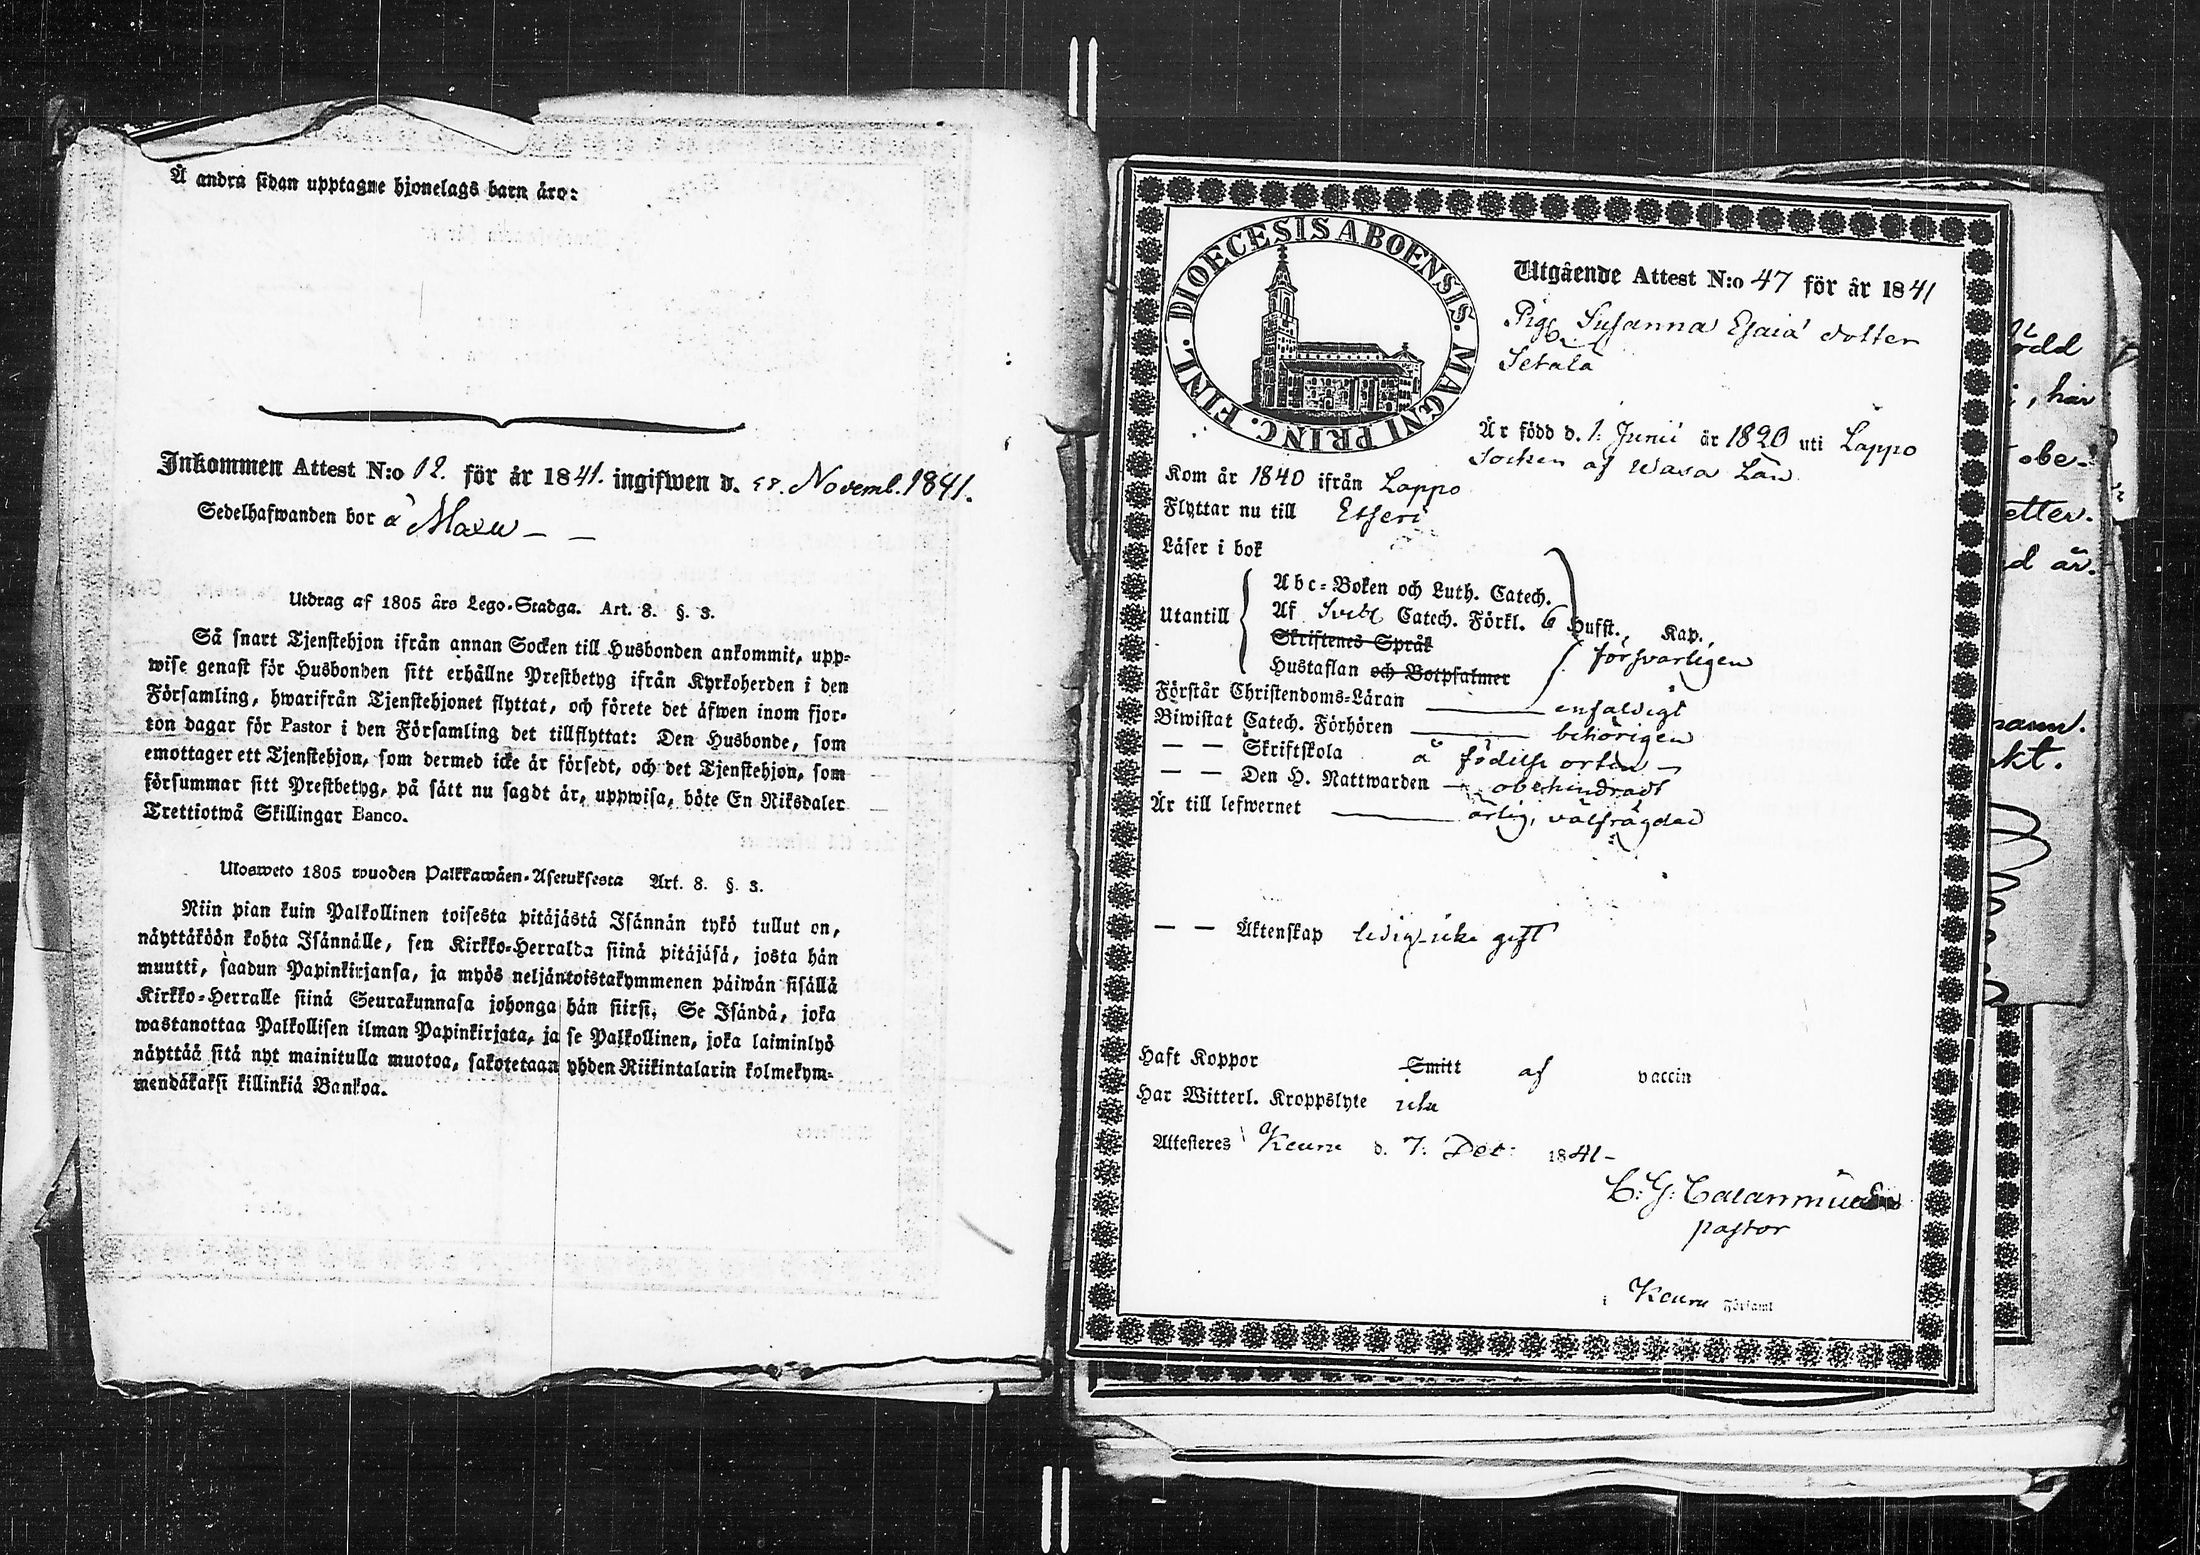 Å andra sidan upptagne hjonelags barn äro:
Inkommen Attest N:o 12. för år 1841. ingifwen d. Novemb. 1841.
Sedelhafwanden bor å
Utdrag af 1805 års Lego-Stadga. Art. 8. §. 3.
Så snart Tjenstehjon ifrån annan Socken till Husbonden ankommit, upp-
wise genast för Husbonden sitt erhållne Prestbetyg ifrån Kyrkoherden i den
Församling, hwarifrån Tjenstehjonet flyttat, och förete det äfwen inom fjor-
ton dagar för Pastor i den Församling det tillflyttat: Den Husbonde, som
emottager ett Tjenstehjon, som dermed icke är försedt, och det Tjenstehjon, som
försummar sitt Prestbetyg, på sätt nu sagdt är, uppwisa, böte En Riksdaler
Trettiotwå Skillingar Banco.
Ulosweto 1805 wuoden Palkkawäen-Asetuksesta Art. 8. §. 3.
Niin pian kuin Palkollinen toisesta pitäjästä Isännän tykö tullut on,
näyttäköön kohta Isännälle, sen Kirkko-Herralda siinä pitäjäsä, josta hän
muutti, saadun Papinkirjansa, ja myös neljäntoistakymmenen päiwän sisällä
Kirkko-Herralle siinä Seurakunnasa johonga hän siirsi. Se Isändä, joka
wastanottaa Palkollisen ilman Papinkirjata, ja se Palkollinen, joka laiminlyö
näyttää sitä nyt mainitulla muotoa, sakotetaan yhden Riikintalarin kolmekym-
mendäkaksi killinkiä Bankoa.
DIOECESIS ABOENSIS. MAGNI PRINC. FINL.
Utgående Attest N:o 47 för år 1841
Pig. Susanna Esaiä dotter
Setälä
Är född d. 1. Junii år 1820 uti Lappo
Socken af Wasa Län
Kom år 1840 ifrån Lappo
Flyttar nu till Etseri
Läser i bok
Utantill
Abc-Boken och Luth. Catech.
Af Sveb. Catech. Förkl. 6 Hufst., Kap.,
Skriftenes Språk försvarligen
Hustaflan och Botpsalmer
Förstår Christendoms-Läran enfaldigt
Biwistat Catech. Förhören behörigen
— — Skriftskola å födelse orten
— — Den H. Nattwarden obehindradt
Är till lefwernet ärlig, välfrägdad
— — Äktenskap ledig icke gift
Haft Koppor Smitt af vaccin
Har Witterl. Kroppslyte icke
Attesteres i Keuru d. 7. Dec: 1841
pastor
i Keuru Församl
född
, har
obe-
etter.
d är.